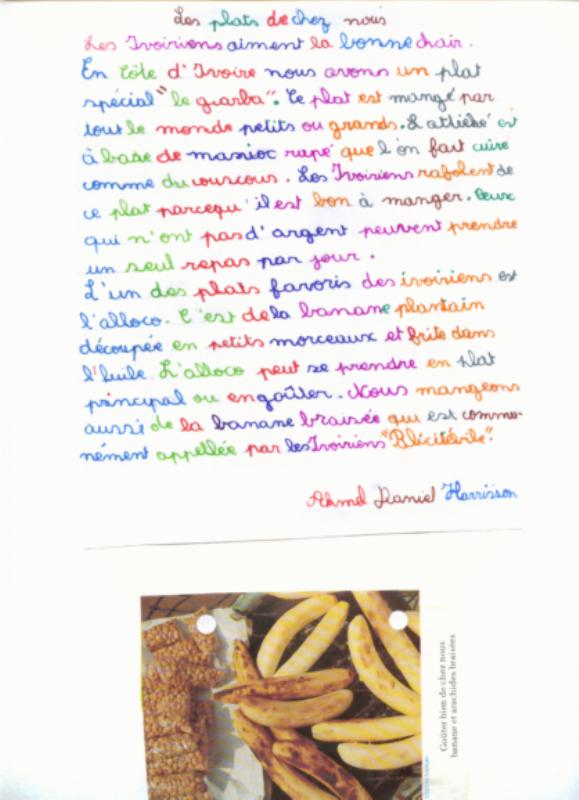 Les plats de chez nous
Les Ivoiriens aiment la bonne chair.
En Côte d'Ivoire nous avons un plat
spécial "le garba". Ce plat est mangé par
tout le monde petits ou grands. L'attiéké est
à base de manioc rapé que l'on fait cuire
comme du couscous. Les Ivoiriens rafolent de
ce plat parcequ'il est bon à manger. Ceux
qui n'ont pas d'argent peuvent prendre
un seul repas par jour.
L'un des plats favoris des ivoiriens est
l'alloco. C'est de la banane plantain
découpée en petits morceaux et frite dans
l'huile. L'alloco peut se prendre en plat
principal ou en goûter. Nous mangeons
aussi de la banane braisée qui est commu-
nément appellée par les Ivoiriens "Blicitébile".
Ahmel Daniel Harrisson
Goûter bien de chez nous
banane et arachides braisées